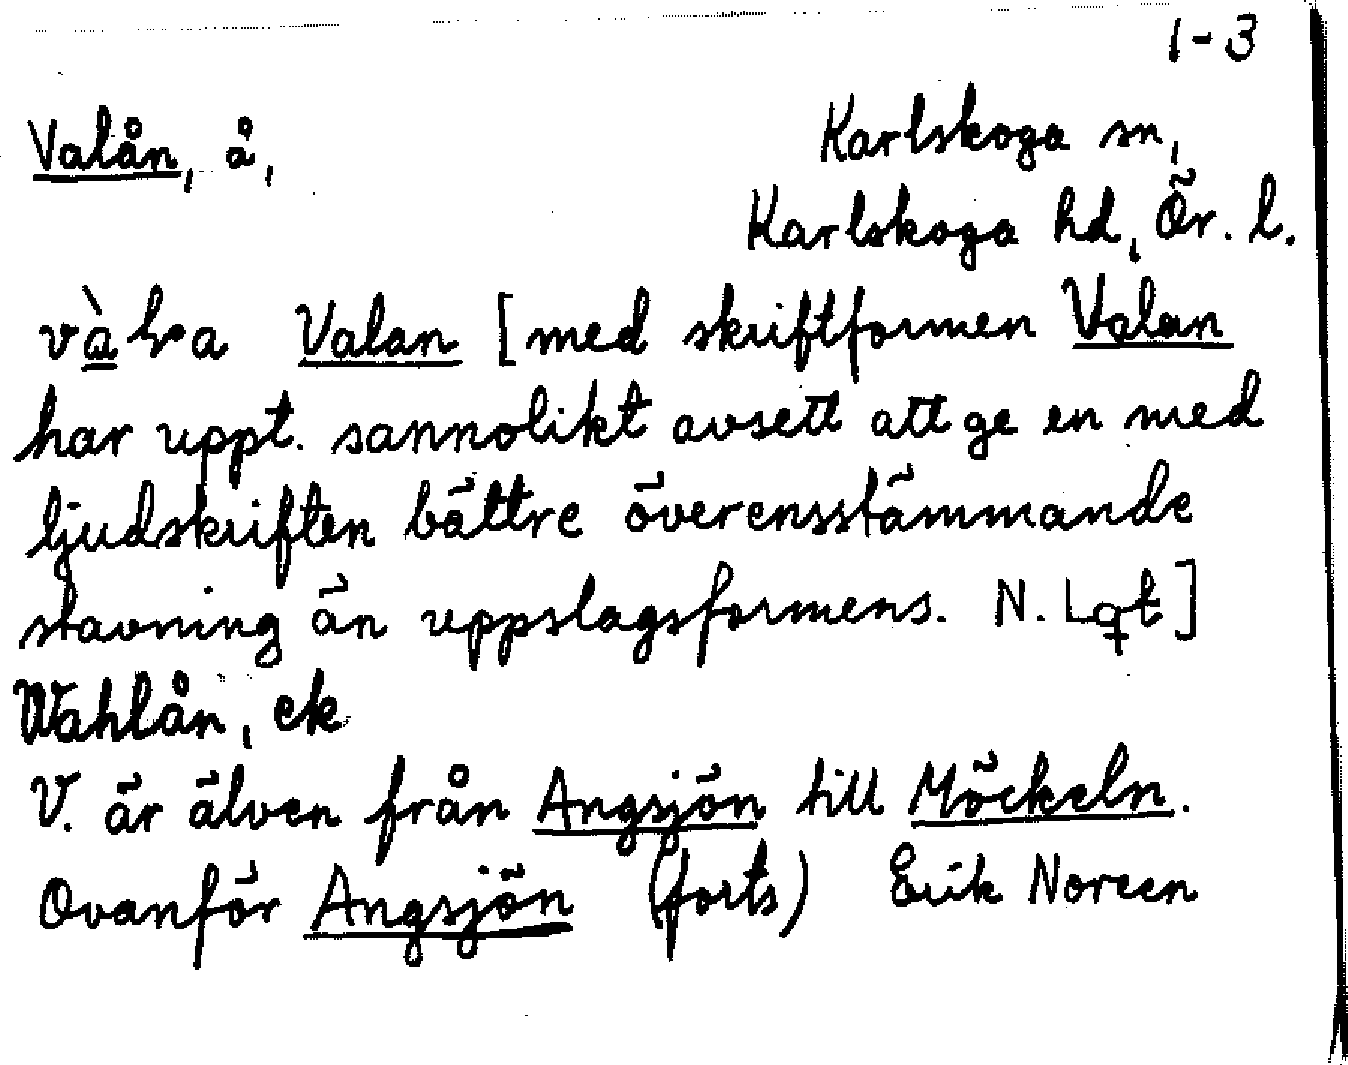 1-3
Valån, å,
Karlskoga sn,
Karlskoga hd, Ör. l.
Valan [med skriftformen Valan
har uppt. sannolikt avsett att ge en med
ljudskriften bättre överensstämmande
stavning än uppslagsformens. N. Lgt]
Wahlån, ek
V. är älven från Angsjön till Möckeln.
Ovanför Angsjön (forts) Erik Noreen